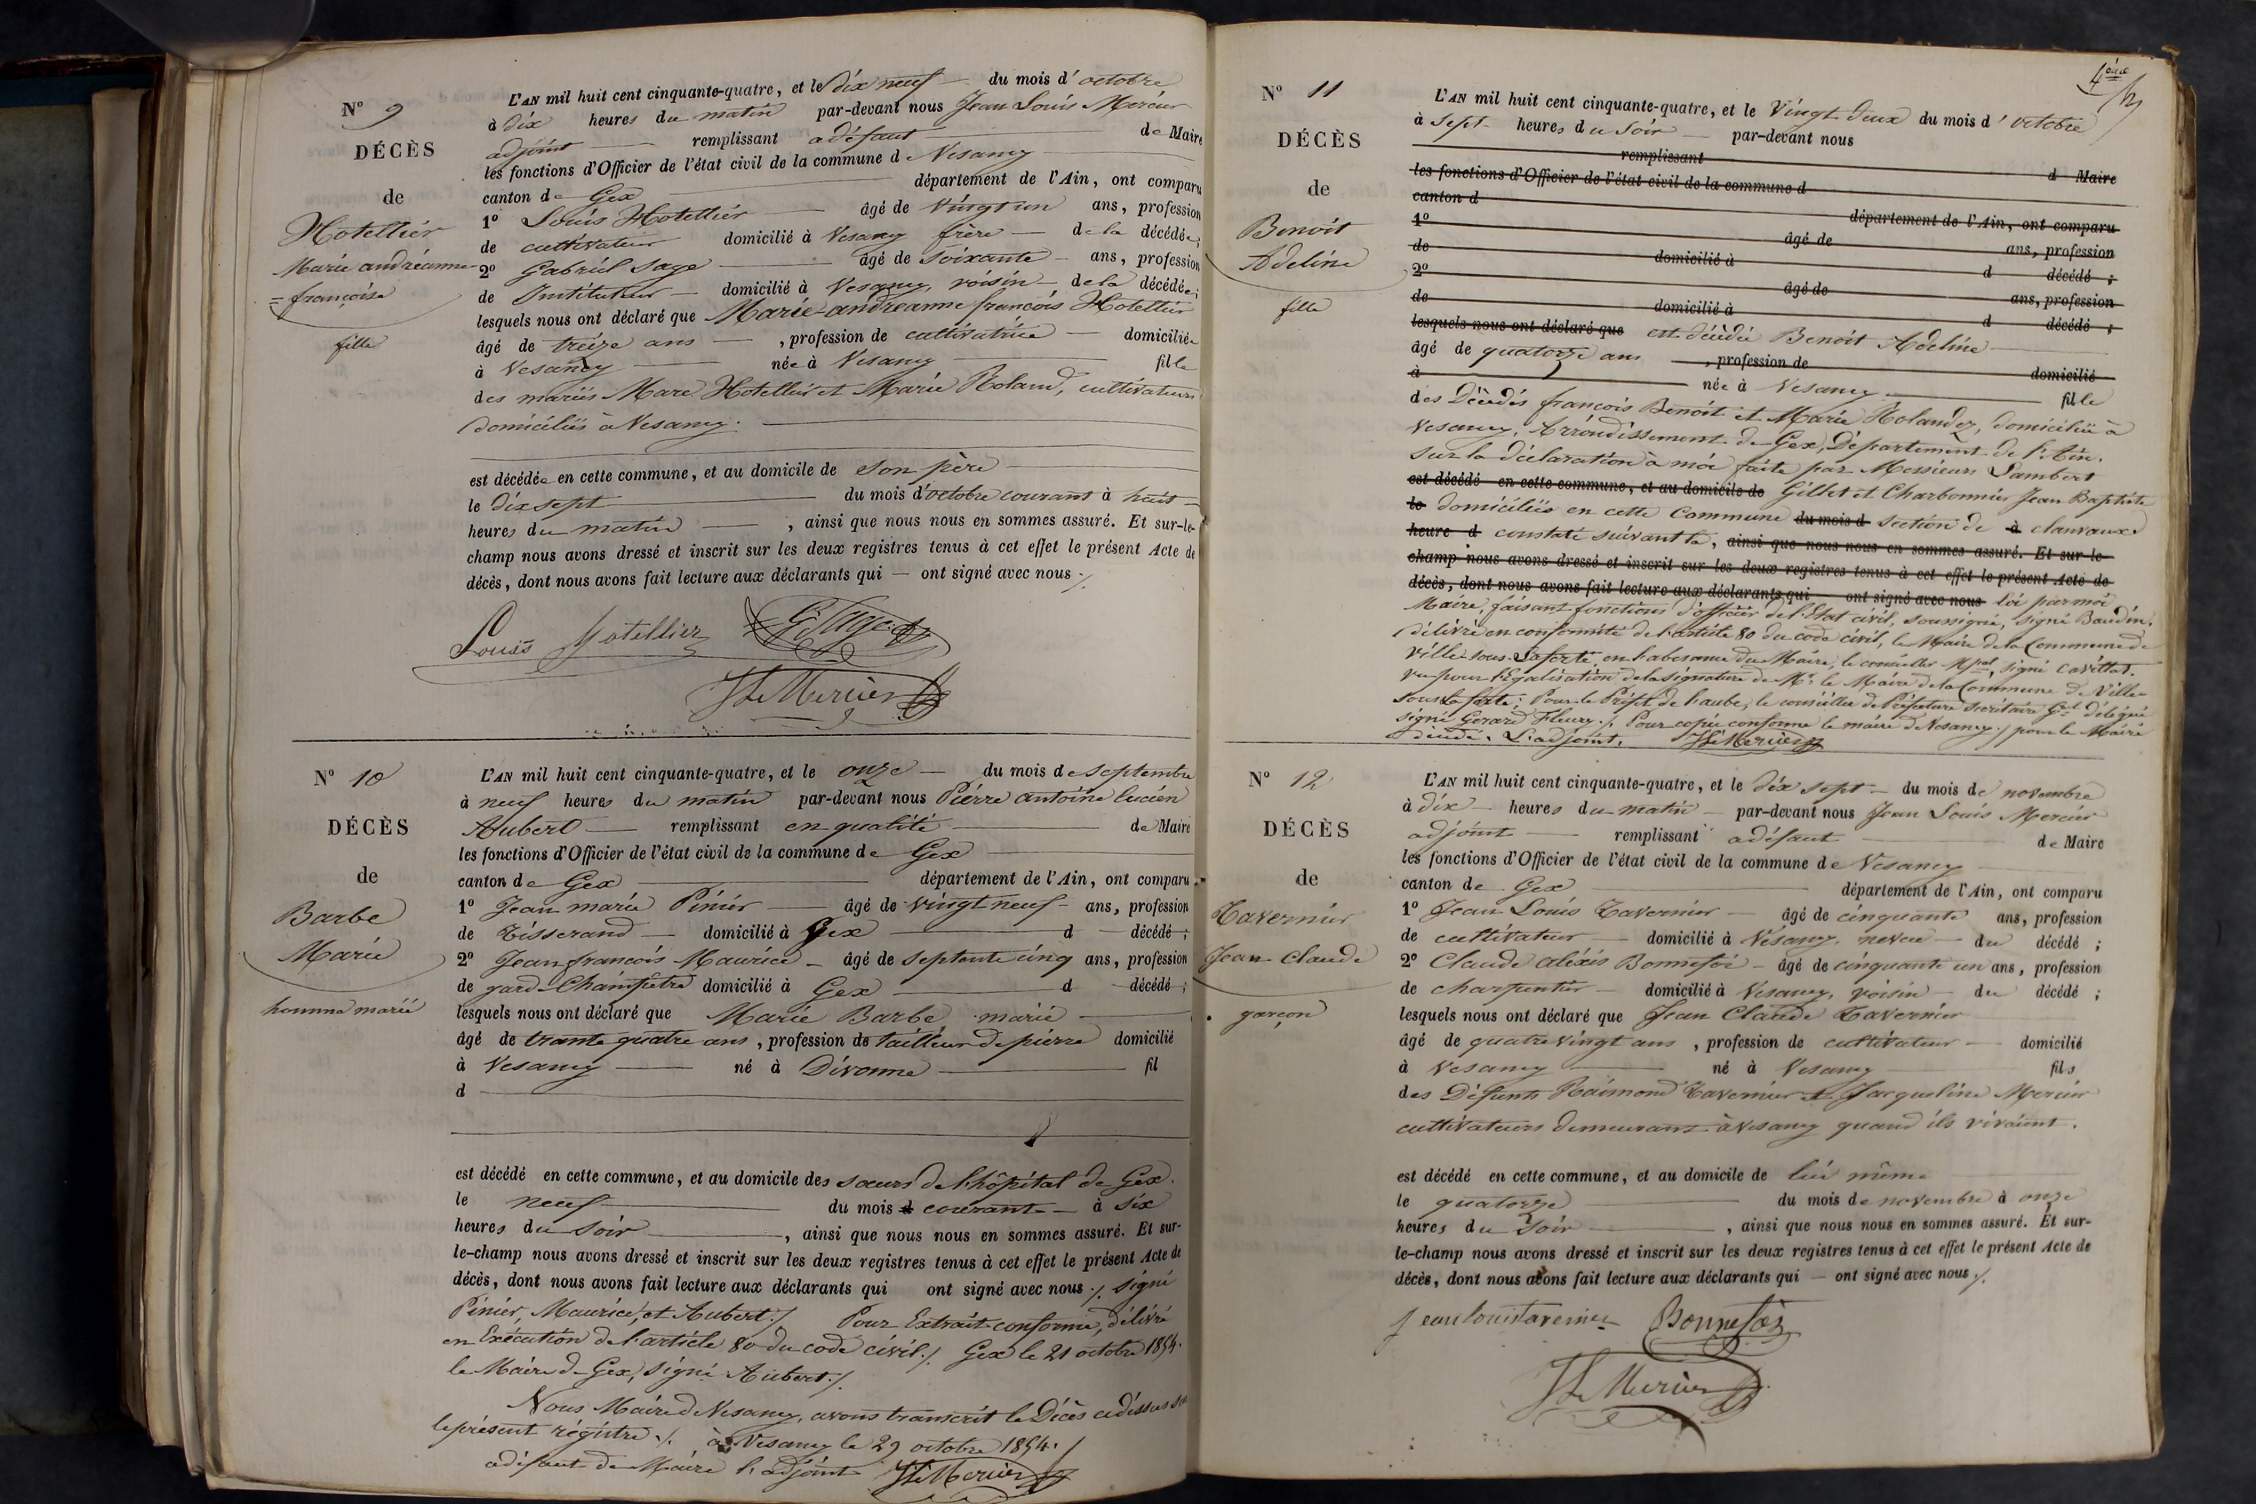 N° 9
DÉCÈS
de
Hotellier
Marie andréanne
= françoise
fille
L'AN mil huit cent cinquante-quatre, et le dix neuf du mois d'octobre
à dix heures du matin par-devant nous Jean Louis Mercier
adjoint remplissant a défaut de Maire
les fonctions d'Officier de l'état civil de la commune de Vesancy
canton de Gex département de l'Ain, ont comparu
1° Louis Hotellier âgé de vingt un ans, profession
de cultivateur domicilié à Vesancy frère de la décédée;
2° Gabriel Sage âgé de soixante ans, profession
de Instituteur domicilié à Vesancy, voisin de la décédée;
lesquels nous ont déclaré que Marie-andréanne françois Hotellier
âgé de treize ans, profession de cultivatrice domiciliée
à Vesancy née à Vesancy fille
des mariés Marc Hotellier et Marie Roland, cultivateurs
domiciliés à Vesancy.
est décédée en cette commune, et au domicile de son père
le dix sept du mois d'octobre courant à huit
heures du matin, ainsi que nous nous en sommes assuré. Et sur-le-
champ nous avons dressé et inscrit sur les deux registres tenus à cet effet le présent Acte de
décès, dont nous avons fait lecture aux déclarants qui — ont signé avec nous ./.
Louis Hotellier G. Sage
JLs Mercier
N° 10
DÉCÈS
de
Barbe
Marie
homme marié
L'AN mil huit cent cinquante-quatre, et le onze du mois de septembre
à neuf heures du matin par-devant nous Pierre antoine lucien
Aubert remplissant en qualité de Maire
les fonctions d'Officier de l'état civil de la commune de Gex
canton de Gex département de l'Ain, ont comparu
1° Jean marie Pinier âgé de vingt neuf ans, profession
de Tisserand domicilié à Gex d décédé;
2° Jean françois Maurice âgé de septante cinq ans, profession
de gard-Champêtre domicilié à Gex d décédé;
lesquels nous ont déclaré que Marie Barbe marié
âgé de trante quatre ans, profession de tailleur de pierre domicilié
à Vesancy né à Divonne fil
d
est décédé en cette commune, et au domicile des sœurs de l'hôpital de Gex.
le neuf du mois d courant à six
heures du soir, ainsi que nous nous en sommes assuré. Et sur-
le-champ nous avons dressé et inscrit sur les deux registres tenus à cet effet le présent Acte de
décès, dont nous avons fait lecture aux déclarants qui ont signé avec nous ./. signé
Pinier, Maurice, et Aubert ./. Pour Extrait conforme, délivré
en Exécution de l'article 80 du code civil ./. Gex le 21 octobre 1854.
le Maire de Gex, signé Aubert ./.
Nous Maire de Vesancy, avons transcrit le Décès cidessus sur
le présent régistre ./. à Vesancy le 29 octobre 1854.
a défaut de Maire l'adjoint JLs Mercier
4ème
N° 11
DÉCÈS
de
Benoit
Adeline
fille
L'AN mil huit cent cinquante-quatre, et le Vingt deux du mois d'octobre
à sept heures du soir par-devant nous
remplissant d Maire
les fonctions d'Officier de l'état civil de la commune d
canton d département de l'Ain, ont comparu
1° âgé de ans, profession
de domicilié à d décédé;
2° âgé de ans, profession
de domicilié à d décédé;
lesquels nous ont déclaré que est décédée Benoit Adeline
âgé de quatorze ans, profession de domicilié
à née à Vesancy fille
des Décédés françois Benoit et Marie Rolandez, domiciliée à
Vesancy, Arrondissement de Gex, Département de l'Ain.
sur la déclaration à moi faite par Messieurs Lambert
est décédé en cette commune, et au domicile de Gillet et Charbonnier Jean Baptiste
le domiciliés en cette Commune du mois d section de à clairvaux
heure d constaté suivant la, ainsi que nous nous en sommes assuré. Et sur-le-
champ nous avons dressé et inscrit sur les deux registres tenus à cet effet le présent Acte de
décès, dont nous avons fait lecture aux déclarants qui ont signé avec nous loi par moi
Maire, faisant fonctions d'officier de l'Etat civil, soussigné, signé Baudin.
délivré en conformité de l'article 80 du code civil, le Maire de la Commune de
Ville-sous-Laferté, en l'absence du Maire, le conseiller Mpal, signé Cavillet.
vu pour légalisation de la signature de Mr. le Maire de la Commune de Ville-
sous-la ferté; Pour le Préfet de l'aube, le conseiller de Préfecture secrétaire Gal délégué
signé Gerard Fleury ./. Pour copie conforme le maire de Vesancy ./. pour le Maire
décédé. L'adjoint. JLs Mercier
N° 12
DÉCÈS
de
Tavernier
Jean-Claude
garçon
L'AN mil huit cent cinquante-quatre, et le dix sept du mois de novembre
à dix heures du matin par-devant nous Jean Louis Mercier
adjoint remplissant a défaut de Maire
les fonctions d'Officier de l'état civil de la commune de Vesancy
canton de Gex département de l'Ain, ont comparu
1° Jean Louis Tavernier âgé de cinquante ans, profession
de cultivateur domicilié à Vesancy, neveu du décédé;
2° Claude alexis Bonnefoi âgé de cinquante un ans, profession
de charpentier domicilié à Vesancy, voisin du décédé;
lesquels nous ont déclaré que Jean Claude Tavernier
âgé de quatre vingt ans, profession de cultivateur domicilié
à Vesancy né à Vesancy fils
des Défunts Raimond Tavernier et Jacqueline Mercier
cultivateurs demeurant à Vesancy quand ils vivaient.
est décédé en cette commune, et au domicile de lui même
le quatorze du mois de novembre à onze
heures du soir, ainsi que nous nous en sommes assuré. Et sur-
le-champ nous avons dressé et inscrit sur les deux registres tenus à cet effet le présent Acte de
décès, dont nous avons fait lecture aux déclarants qui — ont signé avec nous ./.
jean louis tavernier Bonnefoi
JLs Mercier